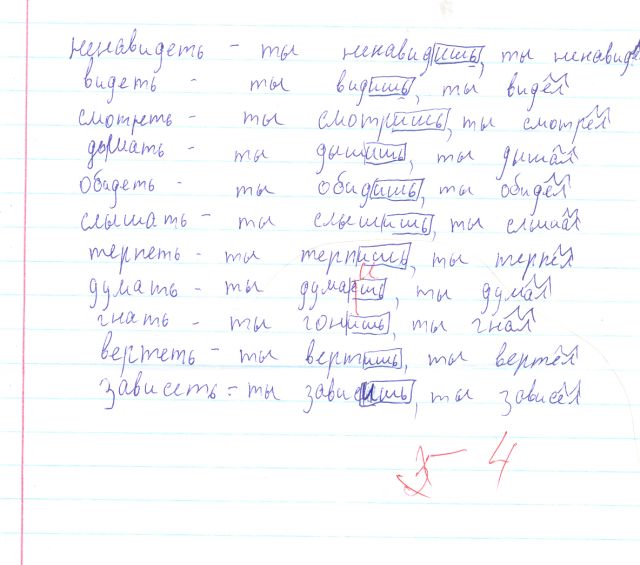 ненавидеть - ты ненавидишь, ты ненавиде
видеть - ты видишь, ты видел
смотреть - ты смотришь, ты смотрел
дымать - ты дышишь, ты дышал
обидеть - ты обидишь, ты обидел
слышать - ты слышишь, ты слшал
терпеть - ты терпишь, ты терпел
думать - ты думаешь, ты думал
гнать - ты гонишь, ты гнал
вертеть - ты вертишь, ты вертел
зависеть - ты зависишь, ты зависел
4